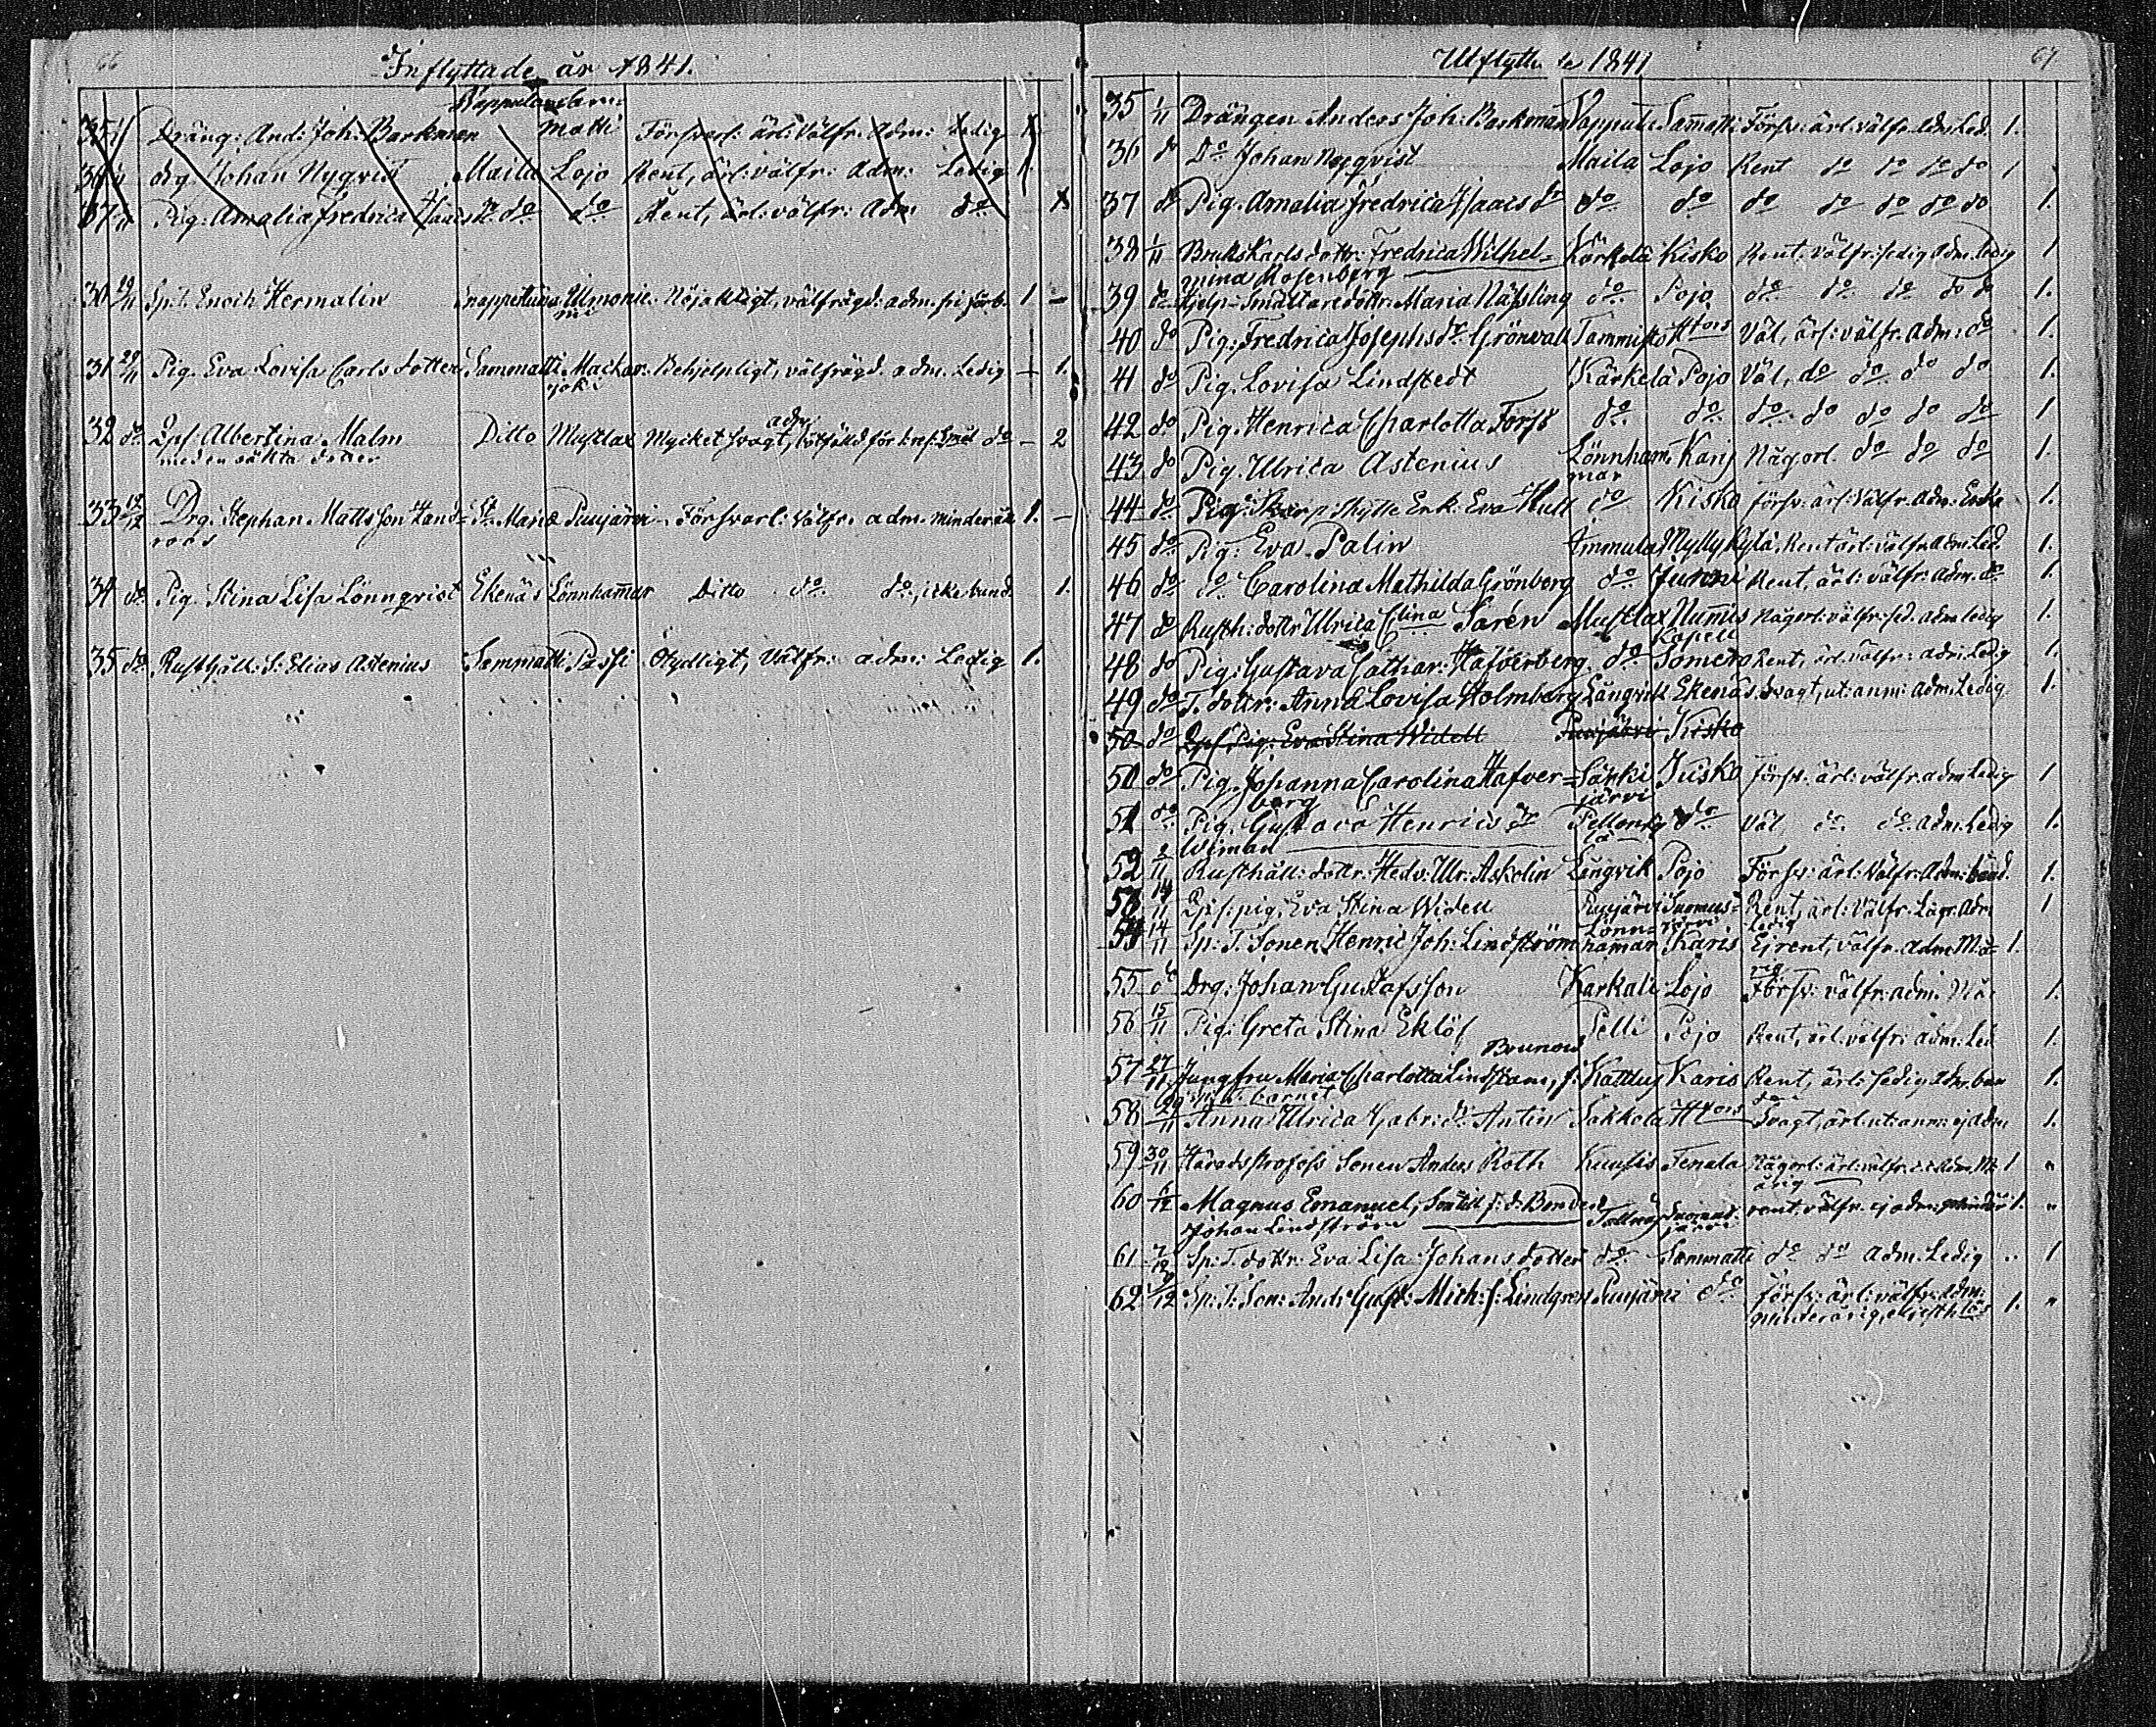 66
Inflyttade år 1841.
35 1/11 Dräng: And: Joh: Barkman Matti Försvarl: ärl: Välfr: Adm: Ledig 1
36 1/11 drg. Johan Nyqvist Maila Lojo Rent, ärl: välfr: Adm: Ledig 1.
37 1/11 Pig: Amalia Fredrica do do Rent, ärl: välfr: Adm do 1
30 29/11 Sp. T. Enoch Hermalin Snappertuna Ulmonie- Nöjaktigt, välfrägd: adm. fri förb. 1 -
mi
31 29/11 Pig. Eva Lovisa Carls dotter Sammatti Mackar- Behjelpligt, välfrägd. adm. Ledig - 1.
joki
adm
32 do Qpf Albertina Malm Ditto Mustlax Mycket svagt, do - 2
med en oäkta dotter
33 12/12 Drg. Stephan Mattsson Hand- St. Mariæ Puujärvi Försvarl: Välfr. adm. minderår 1. -
roos
34 do Pig. Stina Lisa Lönnqvist Ekenäs Lönnhammar Ditto do do, icke bund 1.
35 do Rusthåll: S: Elias Astenius Sammatti Passi Otydligt, Välfr: adm: Ledig 1.
67
Utflyttade 1841
35 1/11 Drängen Anders Joh: Barkman Vapputi Sammatti Försv: ärl: välfr. adm. Led. 1.
36 do Do Johan Nyqvist Maila Lojo Rent do do do do 1
37 do Pig. Amalia Fredrica Isaacs dr do do do do do do do 1.
38 1/11 Bruks Karls dottr: Fredrica Wilhel- Kärkelä Kisko Rent. Välfr: sedig Adm. Ledig 1
mina Rosenberg
39 do Hjelp-Smältare dottr: Maria Näsling do Pojo do do do do do 1.
40 do Pig: Fredrica Josephs dr Grönvall Tammisto Hfors Väl, ärl: välfr: Adm: do 1.
41 do Pig. Lovisa Lindstedt Kärkelä Pojo Väl, do do do do 1.
42 do Pig. Henrica Charlotta Forss do do do do do do do 1
43 do Pig. Ulrica Astenius Lönnham- Karis Någorl. do do do 1.
mar
44 do Pig: Skarpskytte Enk: Eva Hull do Kisko försv: ärl: Välfr. Adm: Enka 1.
45 do Pig: Eva Palin Ammula Myllykylä Rent ärl: välfr. Adm. Led. 1.
46 do do Carolina Mathilda Grönberg do Rent, ärl: välfr: Adm. do 1.
47 do Rusth: dottr Ulrica Clina Sarén Mustlax Nummis Någorl: välfr: sed. adm ledig 1.
Kapell
48 do Pig: Gustava Cathar: Hafverberg do Somero Rent, ärl. välfr: adm: Ledig 1.
49 do T. dottr: Anna Lovisa Holmberg Långvik Ekenäs. Svagt, ut: anm: adm: Ledig 1.
50 do Qpf pig: Eva Stina Widell Puujärvi Kisko
50 do Pig. Johanna Carolina Hafver- Särki Kisko försv. ärl: välfr. adm Ledig 1
berg järvi
51 do Pig. Gustava Henrics dr Pellonky do Väl, do do adm. Ledig 1.
Wiman lä
52 2/11 Rusthåll: dottr. Hedv: Ulr: Askolin Långvik Pojo Försv: ärl: Välfr: Adm: bund. 1.
53 14/11 Qpf: pig. Eva Stina Widell Puujärvi Suomus- Rent, ärl: Välfr: Lagr. Adm 1
järvi Ledig
Lönn-
54 14/11 Sp: T: Sonen Henric Joh: Lindström hamar Karis Ej rent, välfr. adm. Må- 1.
rig
55 do Drg: Johan Gustafsson Karkali Lojo Försv: välfr: adm. 1.
56 15/11 Pig: Greta Stina Eklöf Pelli Pojo Rent, ärl. välfr: adm. Led 1.
Brunow
57 27/11 Jungfru Maria Charlotta Lindstam, f: Kattlus Karis Rent, ärl: sedig Adm. bun 1.
den
58 29/11 Anna Ulrica Gabr: dr Antin Sakkola Hfors Svagt, ärl: ut: anm: ej Adm 1.
59 30/11 Häradsprofoss Sonen Anders Roth Kuusis Tenala Någorl: ärl: välfr: Adm. M: 1 "
årig
60 6/12 Magnus Emanuel, Son till f: d: Bonden Tallnäs Suomus- rent. välfr. ej adm: minder 1. "
Johan Lindström järvi
61 7/12 Sp. T. dottr: Eva Lisa Johans dotter do Sammatti do do Adm. Ledig .. 1
62 9/12 Sp: T: Son: And: Gust: Mich: s: Lindgren Puujärvi do försv: ärl: välfr: adm: 1. "
minderårig,